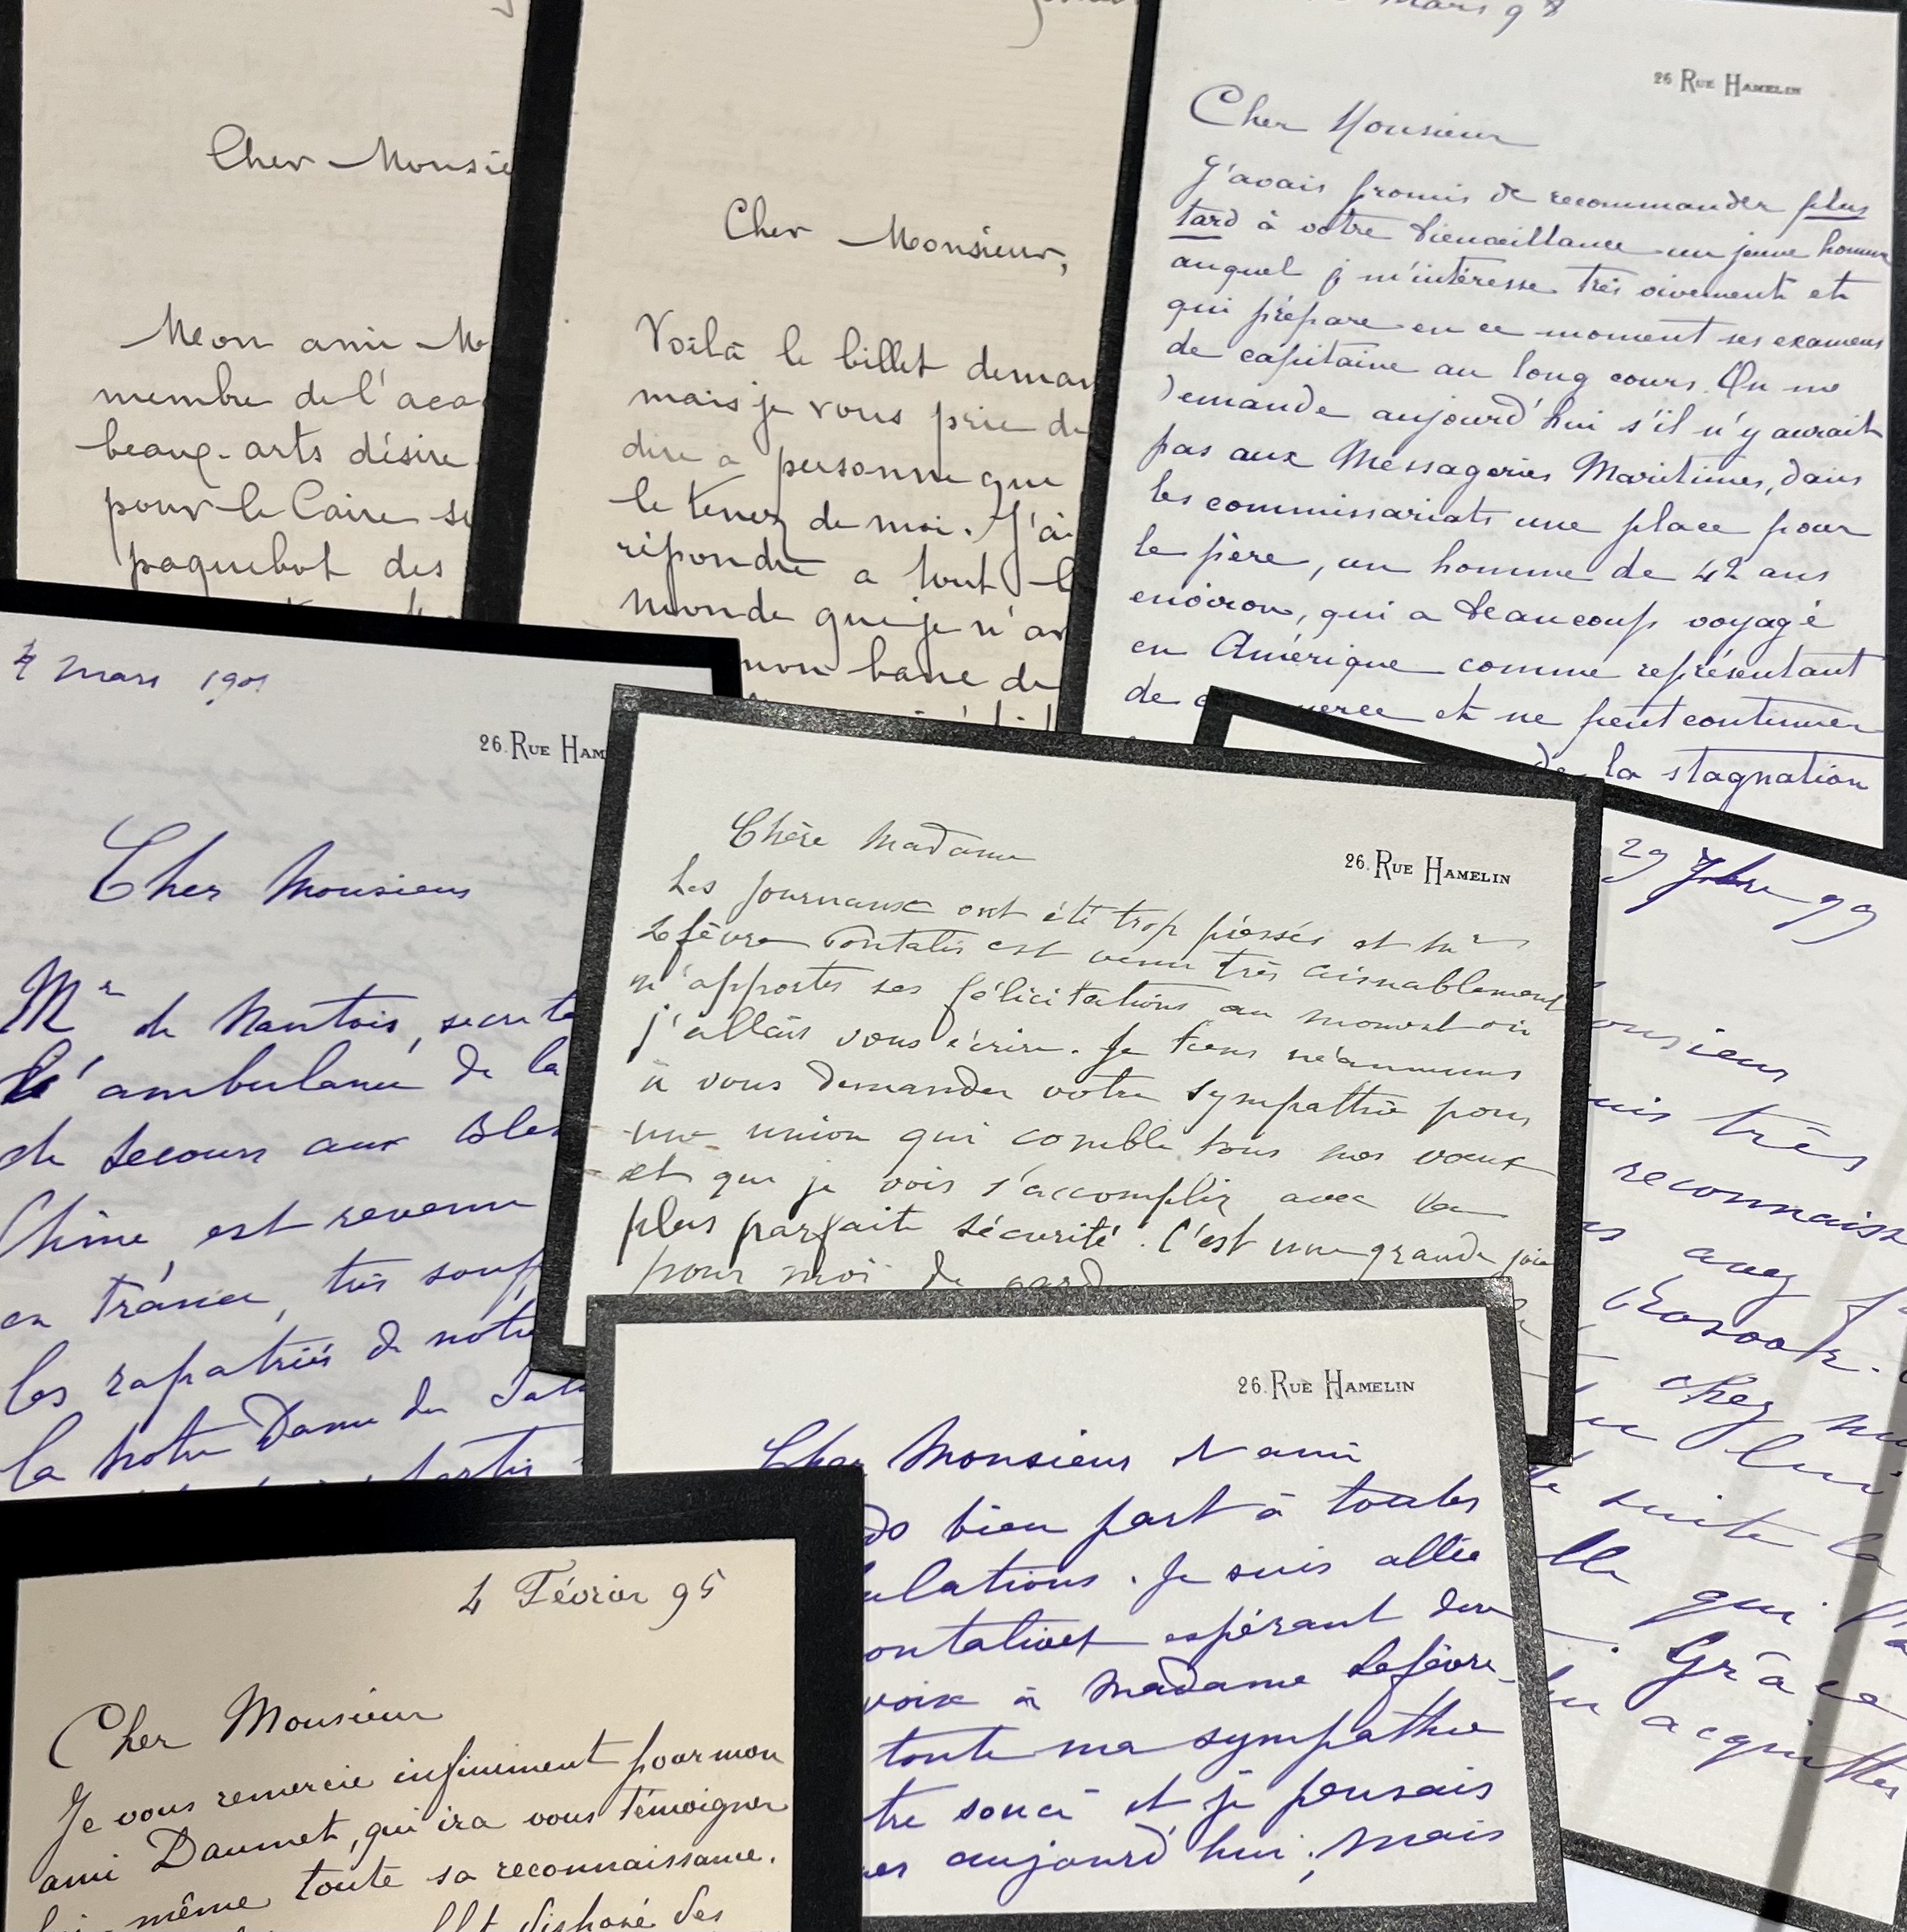 Cher Monsie
Mon ami M
membre de l'aca
beaux-arts désire
pour le Caire s
paquebot des
Cher Monsieur,
Voilà le billet deman
mais je vous prie de
dire a personne que
le tenez de moi. J'ai
répondre a tout l
monde que je n'av
mon banc de
Mars 98
26 Rue Hamelin
Cher Monsieur
J'avais promis de recommander plus
tard à votre bienveillance un jeune homme
auquel je m'intéresse très vivement et
qui prépare en ce moment ses examens
de capitaine au long cours. On me
demande aujourd'hui s'il n'y aurait
pas aux Messageries Maritimes, dans
les commissariats une place pour
le père, un homme de 42 ans
environ, qui a beaucoup voyagé
en Amérique comme représentant
de et ne peut continuer
de la stagnation
Mars 1901
26. Rue Ham
Cher Monsieur
Mr de Nantois, secréta
l'ambulance de la
de secours aux Bles
Chine, est revenu
en France, très souf
les rapatriés de notre
la Notre Dame du Salu
Chère Madame
26. Rue Hamelin
Les journaux ont été trop pressés et Mr
Lefèvre Pontalis est venu très aimablement
m'apporter ses félicitations au moment où
j'allais vous écrire. Je tiens néanmoins
à vous demander votre sympathie pour
une union qui comble tous nos vœux
et que je vois s'accomplir avec la
plus parfaite sécurité. C'est une grande joie
pour moi de gard
29 7bre 99
onsieur
uis très
reconnaiss
avez
chez
lui
suite la
lle qui l'a
Grâce
acquitter
26. Rue Hamelin
Cher Monsieur et ami
ds bien part à toutes
ulations. Je suis allée
espérant
voix à Madame Lefèvre-
toute ma sympathie
tre souci et je pensais
er aujourd'hui; Mais
4 Février 95
Cher Monsieur
Je vous remercie infiniment pour mon
ami Daumet, qui ira vous témoigner
lui-même toute sa reconnaissance.
disposé des